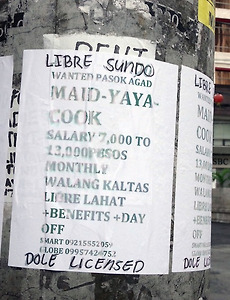 RENT
LIBRE SUNDO
WANTED PASOK AGAD
MAID-YAYA-
COOK
SALARY 7,000 TO
13,000PESOS
MONTHLY
WALANG KALTAS
LIBRE LAHAT
+BENEFITS +DAY
OFF
SMART 09215852059
GLOBE 09957424752
DOLE LICENSED
LIBRE
WANTED
MAID
COOK
SALAR
13,000
MONT
WALA
LIBRE
+BENE
OFF
DOLE